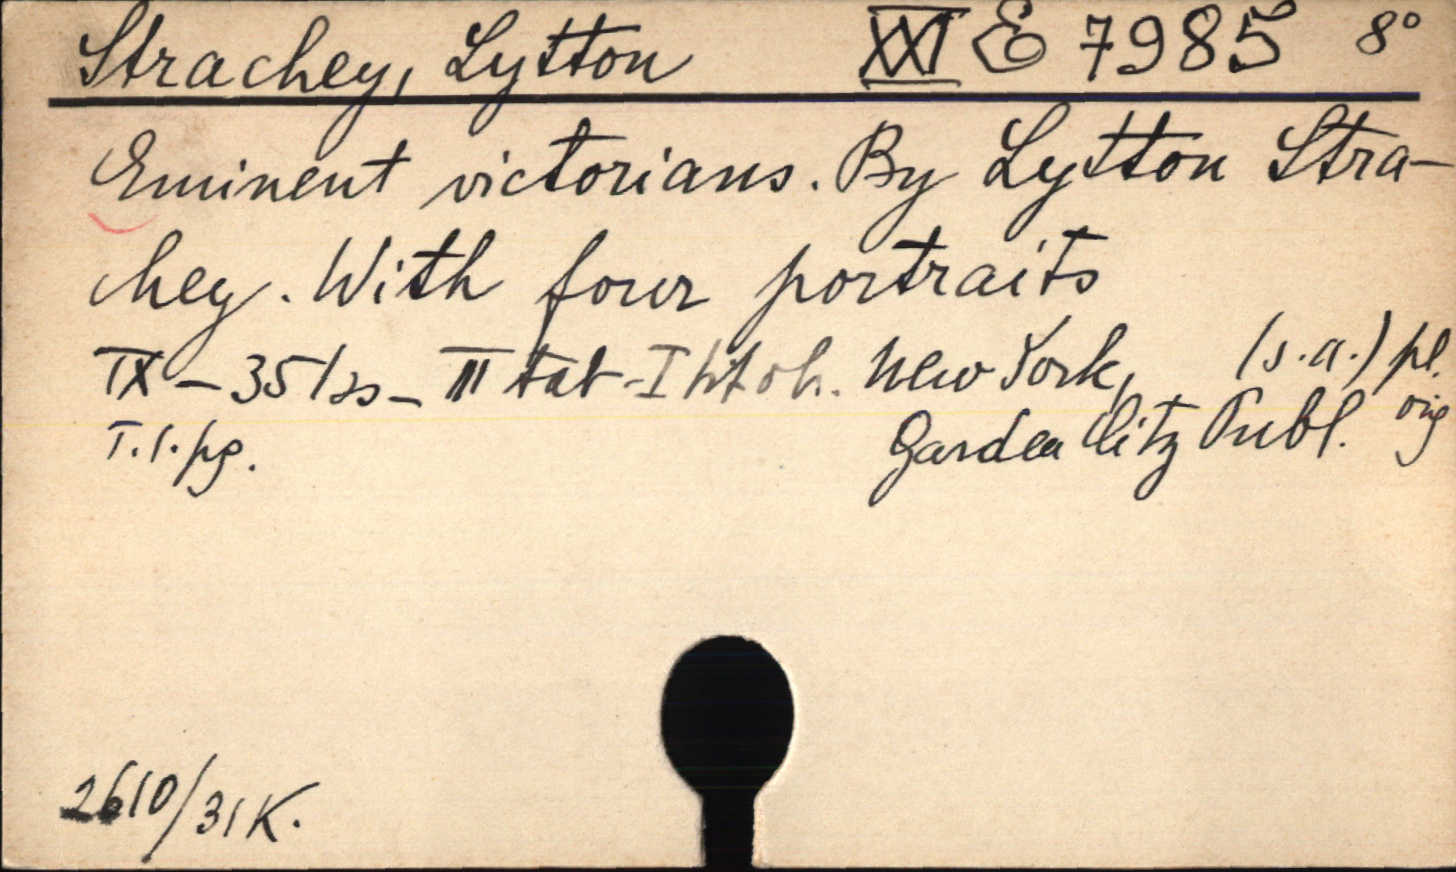 Strachey, Lytton XXI E 7985 8°
Eminent victorians. By Lytton Stra-
chey. With four portraits
IX – 351 – III tab – I New York, (s.a.) pl.
Garden City Publ. orig
T.1.pg.
2610/31K.